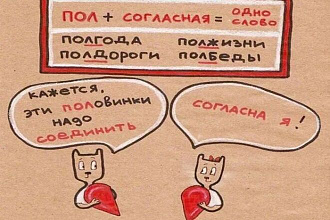 ПОЛ + СОГЛАСНАЯ = ОДНО СЛОВО
ПОЛГОДА ПОЛЖИЗНИ
ПОЛДОРОГИ ПОЛБЕДЫ
КАЖЕТСЯ,
ЭТИ ПОЛОВИНКИ
НАДО
СОЕДИНИТЬ
СОГЛАСНА Я!